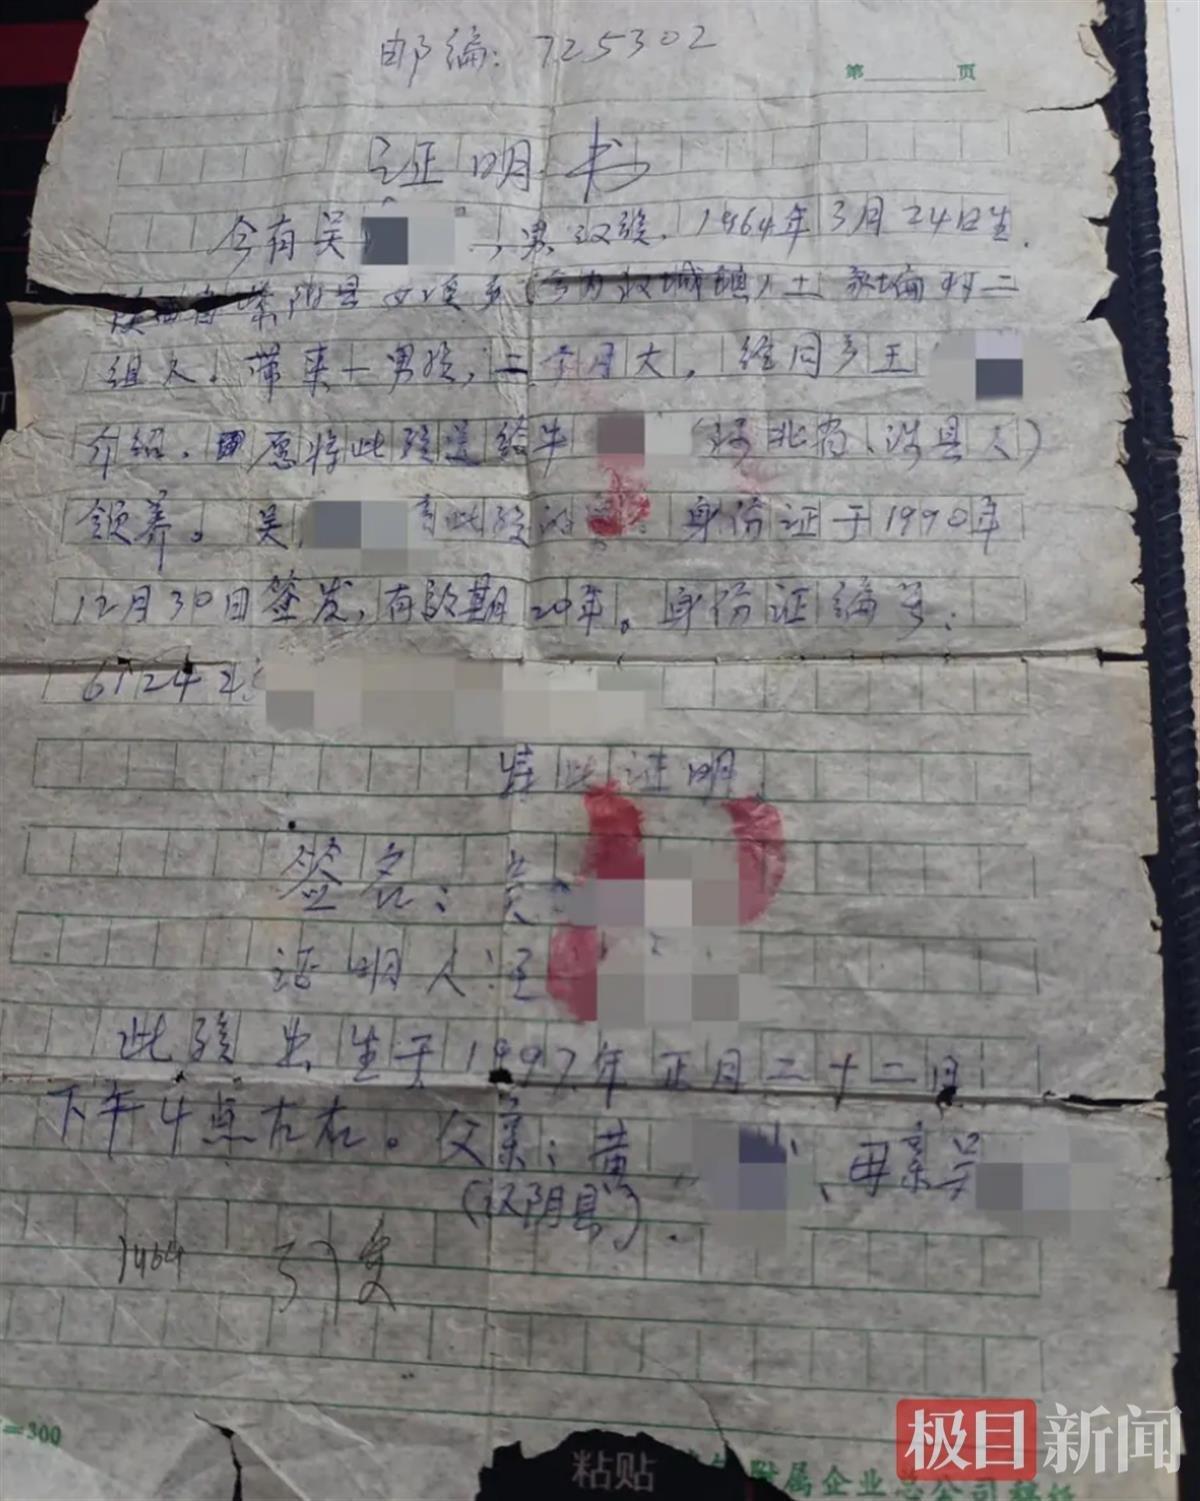 邮编：725302
第 页
证明书
今有吴 ，男 汉族，1964年3月24日生，
紫阳县 乡(今为汉城镇) 村二
组人。带来一男孩，二个月大，经同乡王
介绍，愿将此孩送给牛 (河北省、涉县人)
领养。吴 此孩 。身份证于1990年
12月30日签发，有效期20年。身份证编号：
61242
特此证明
签名：吴
证明人：王
此孩出生于1997年正月二十二日
下午4点左右。父亲：黄 、母亲吴
(汉阴县).
1464
=300
粘贴
附属企业总公司稿纸
极目新闻